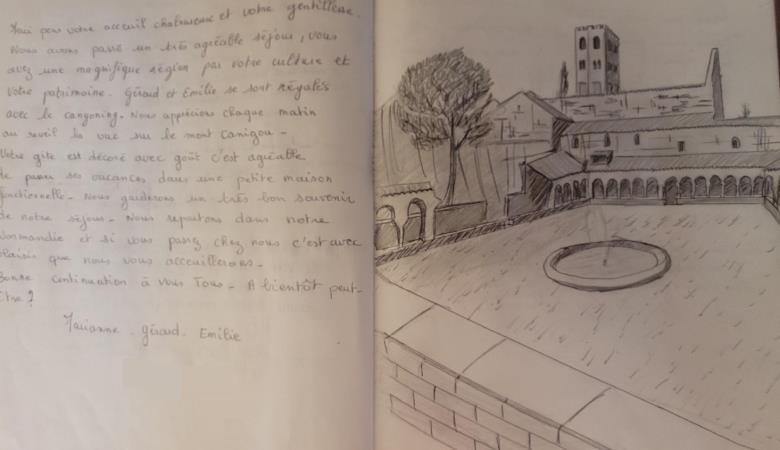 Merci pour votre accueil chaleureux et votre gentillesse.
Nous avons passé un très agréable séjour, vous
avez une magnifique région par votre culture et
votre patrimoine. Gérard et Emilie se sont régalés
avec le cangoning. Nous apprécions chaque matin
au reveil la vue sur le mont Canigou -
Votre gite est décoré avec goût c'est agréable
de passer ses vacances dans une petite maison
fonctionnelle - Nous garderons un très bon souvenir
de notre séjour - Nous repartons dans notre
Normandie et si vous passez chez nous c'est avec
plaisir que nous vous acceuillerons -
Bonne continuation à vous Tous - A bientôt peut-
être ?
Marianne - Gérard - Emilie